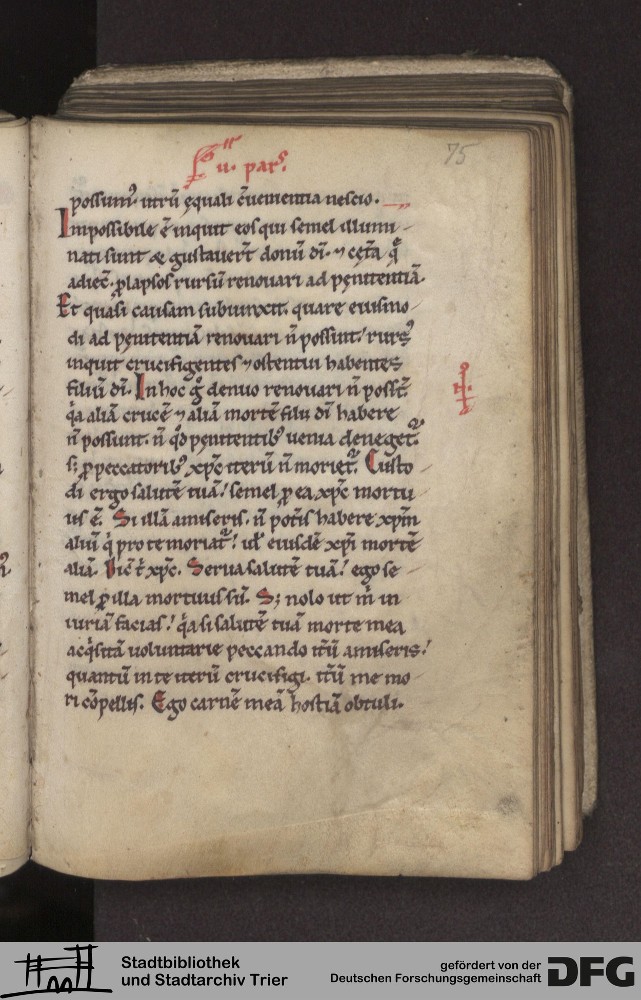 .ii. pars.
75
possumus. utrũ ęquali ꝯuenientia nescio.
Impossibile ẽ inquit eos qui semel illumi
nati sunt & gustauer̃t donũ dī. ⁊ cet̃a q̃
adiec̃. ꝓlapsos rursũ renouari ad pęnitentiã.
Et quasi causam subiunxit. quare eiusmo
di ad pęnitentiã renouari ñ possint. rursꝰ
inquit crucifigentes ⁊ ostentui habentes
filiũ dī. In hoc gͦ denuo renouari ñ possẽt
q̇a aliã crucẽ ⁊ aliã mortẽ filii dī habere
ñ possunt. ñ qd̃ pęnitentibꝰ uenia deneget᷑.
s; ꝓ peccatoribꝰ xp̄c iterũ ñ moriet᷑. Custo
di ergo salutẽ tuã! semel ꝓ ea xp̄c mortu
us ẽ. Si illã amiseris. ñ pot̃is habere xp̄m
aliũ q̇ pro te moriat᷑! ul̃ eiusdẽ xp̄i mortẽ
aliã. Dic̃ t̃ xp̄c. Serua salutẽ tuã! ego se
mel ꝓ illa mortuus sũ. S; nolo ut m̃ in
iuriã facias! q̇a si salutẽ tuã morte mea
acq̇sitã uoluntarie peccando it̃ũ amiseris!
quantũ in te iterũ crucifigi. it̃ũ me mo
ri cõpellis. Ego carnẽ meã hostiã obtuli.
Stadtbibliothek
und Stadtarchiv Trier
gefördert von der
Deutschen Forschungsgemeinschaft
DFG